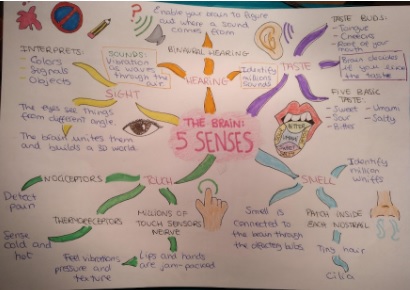 Enable your brain to figure
out where a sound
comes from
BINAURAL HEARING
HEARING
Identify
millions
sounds
SOUNDS:
Vibration
as waves
through the
air
TASTE BUDS:
- Tongue
- Cheeks
- Roof of your
mouth
Brain decodes
if you like
the taste
TASTE
FIVE BASIC
TASTE:
- Sweet - Umami
- Sour - Salty
- Bitter
BITTER
INTERPRETS:
- Colors
- Signals
- Objects
SIGHT
The eyes see things
from different angle
The brain unites them
and builds a 3D world.
THE BRAIN:
5 SENSES
TOUCH
NOCICEPTORS
Detect
pain
THERMOCEPTORS
Sense
cold and
hot
MILLIONS OF
TOUCH SENSORS
NERVE
Feel vibrations
pressure and
texture
Lips and hands
are jam-packed
SMELL
Identify
million
whiffs
Smell is
connected to
the brain through
the olfactory bulbs
PATCH INSIDE
EACH NOSTRIL
Tiny hair
Cilia